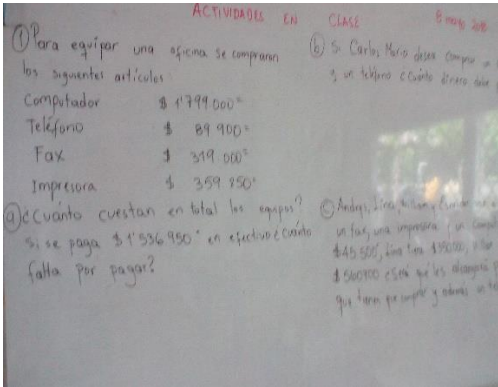 ACTIVIDADES EN CLASE 8 mayo
① Para equipar una oficina se compraron
los siguientes artículos
Computador $ 1'799.000=
Teléfono $ 89.900=
Fax $ 319.000=
Impresora $ 359.850=
ⓐ ¿Cuánto cuestan en total los equipos?
Si se paga $1'536.950= en efectivo ¿cuánto
falta por pagar?
ⓑ Si Carlos Mario desea comprar un
y un teléfono ¿cuánto dinero debe
ⓒ Andrés, Lina,
un fax, una impresora
$45.500, Lina tiene
que tienen que comprar y además un